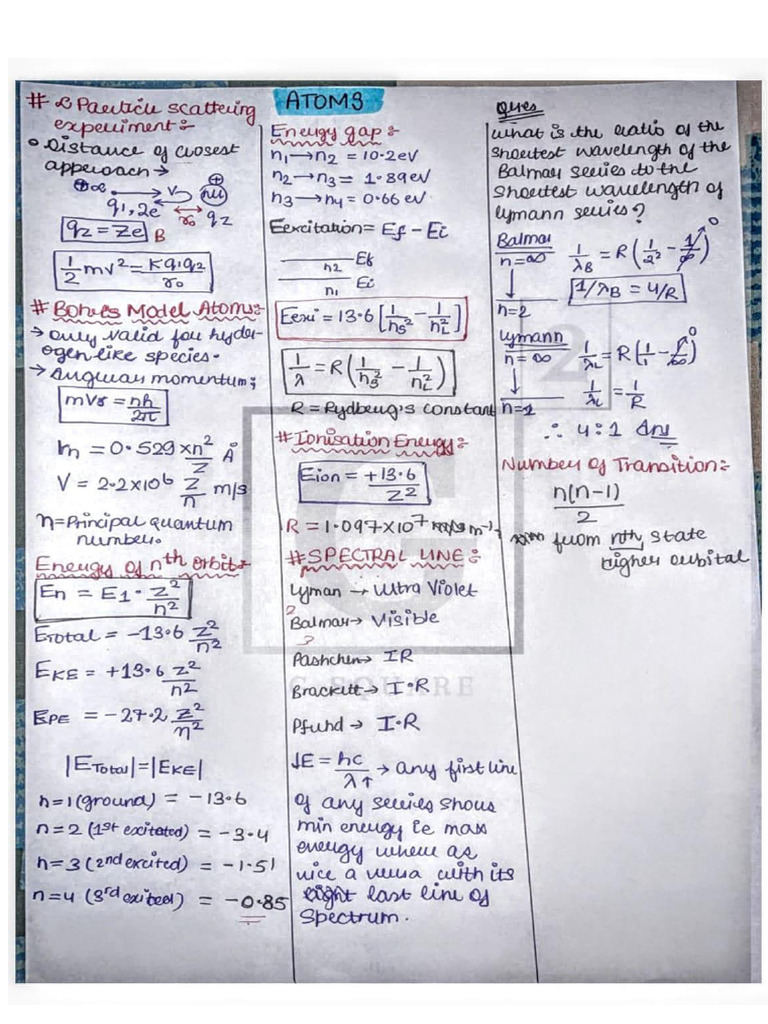 ATOMS
# α Particle scattering
experiment:-
• Distance of closest
approach →
⊕α V ⊕ nu
q1, 2e r₀ q2
q2 = Ze B
1/2 mv² = Kq1q2/r₀
# Bohr's Model Atoms:-
→ Only valid for hydr-
ogen like species.
→ Angular momentum:
mvr = nh/2π
rn = 0.529 × n²/Z Å
V = 2.2×10⁶ Z/n m/s
n = Principal quantum
number.
Energy of nth orbit:-
En = E1 · Z²/n²
ETotal = -13.6 Z²/n²
EKE = +13.6 Z²/n²
EPE = -27.2 Z²/n²
|ETotal| = |EKE|
n=1 (ground) = -13.6
n=2 (1st exitated) = -3.4
n=3 (2nd excited) = -1.51
n=4 (3rd exited) = -0.85
Energy gap:-
n1 → n2 = 10.2eV
n2 → n3 = 1.89eV
n3 → n4 = 0.66 eV
Eexcitation = Ef - Ei
n2 Ef
n1 Ei
Eexi = 13.6 [1/nS² - 1/nL²]
1/λ = R (1/nS² - 1/nL²)
R = Rydberg's Constant
# Ionisation Energy:-
Eion = +13.6/Z²
R = 1.097×10⁷ m⁻¹
# SPECTRAL LINE:-
Lyman → Ultra Violet
Balmar → Visible
Pashchen → IR
Brackett → I·R
Pfund → I·R
↓E = hc/λ↑ → any first line
of any series shows
min energy ie max
energy where as
vice a versa with its
right last line of
Spectrum.
Ques
What is the ratio of the
Shortest wavelength of the
Balmar series to the
Shortest wavelength of
Lymann series?
Balmar
n=∞ 1/λB = R (1/2² - 1/∞) 0
n=2 1/λB = 4/R
Lymann
n=∞ 1/λL = R (1/1 - 1/∞) 0
n=1 1/λL = 1/R
∴ 4:1 Ans
Number of Transition:-
n(n-1)/2
from nth state
higher orbital
G SQUARE
2